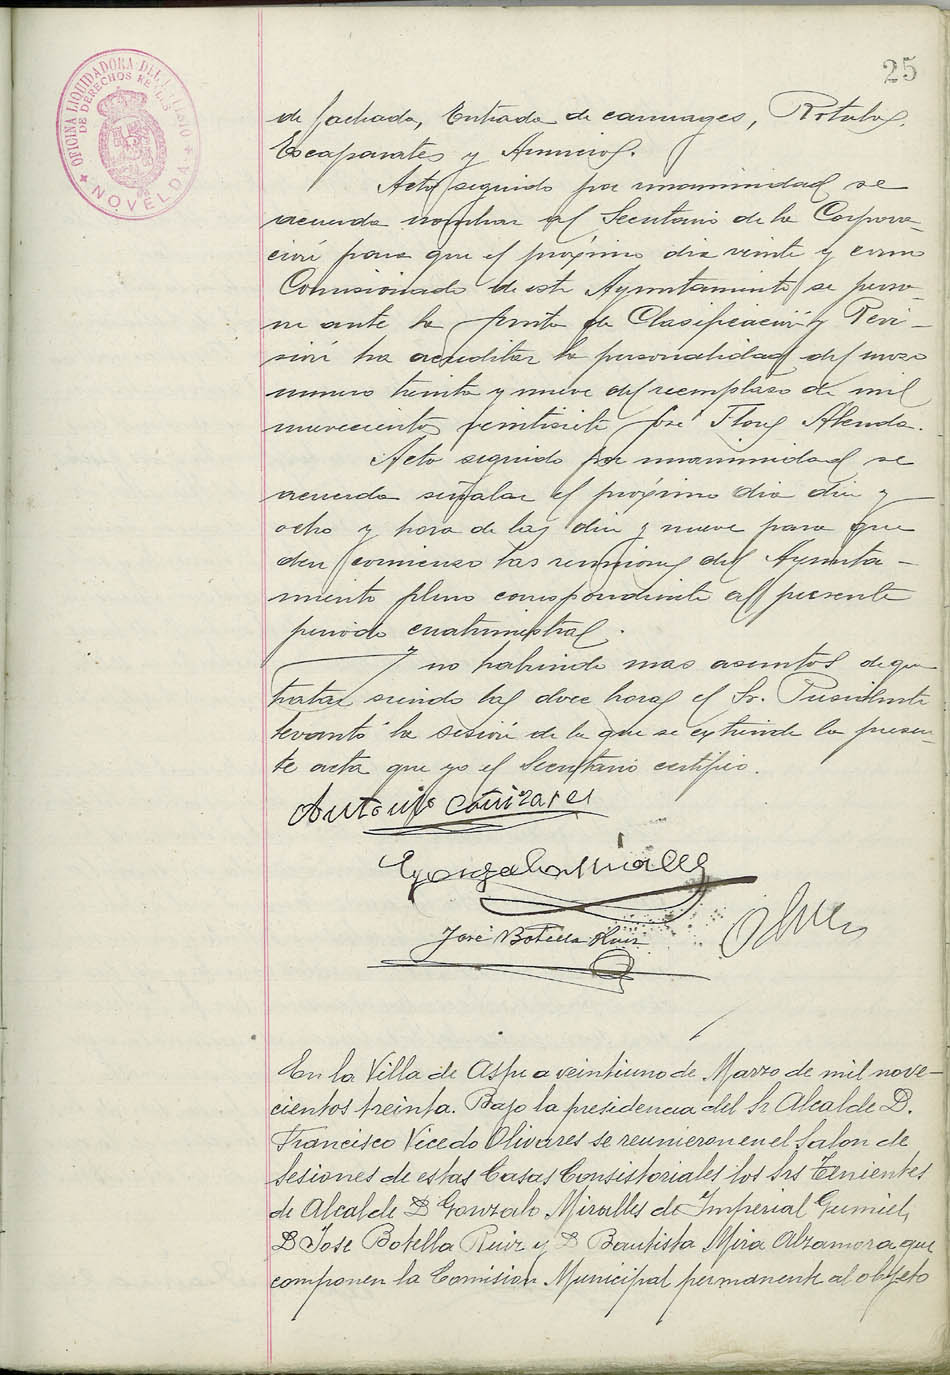 25
OFICINA LIQUIDADORA DEL
DE DERECHOS REALES
NOVELDA
de fachada, Entrada de carruages, Rotulos,
Escaparates y Anuncios.
Acto seguido por unanimidad se
acuerda nombrar al Secretario de la Corpora-
ción para que el próximo dia veinte y como
Comisionado de este Ayuntamiento se perso-
ne ante la Junta de Clasificación y Revi-
sión ha acreditar la personalidad del mozo
numero treinta y nueve del reemplazo de mil
novecientos veintisiete José Flores
Acto seguido por unanimidad se
acuerda señalar el próximo dia diez y
ocho y hora de las diez y nueve para que
den comienzo las reuniones del Ayunta-
miento pleno correspondiente al presente
periodo cuatrimestral.
Y no habiendo mas asuntos de que
tratar siendo las doce horas el Sr. Presidente
levantó la sesión de la que se extiende la presen-
te acta que yo el Secretario certifico.
Antonio Cañizares
Gonzalo Miralles
José Botella Ruiz
En la Villa de Aspe a veintiuno de Marzo de mil nove-
cientos treinta. Bajo la presidencia del Sr Alcalde D.
Francisco Vicedo Olivares se reunieron en el Salon de
Sesiones de estas Casas Consistoriales los Srs Tenientes
de Alcalde D Gonzalo Miralles de Imperial Gumiel,
D Jose Botella Ruiz y D Bautista Mira Alzamora que
componen la Comision Municipal permanente al objeto